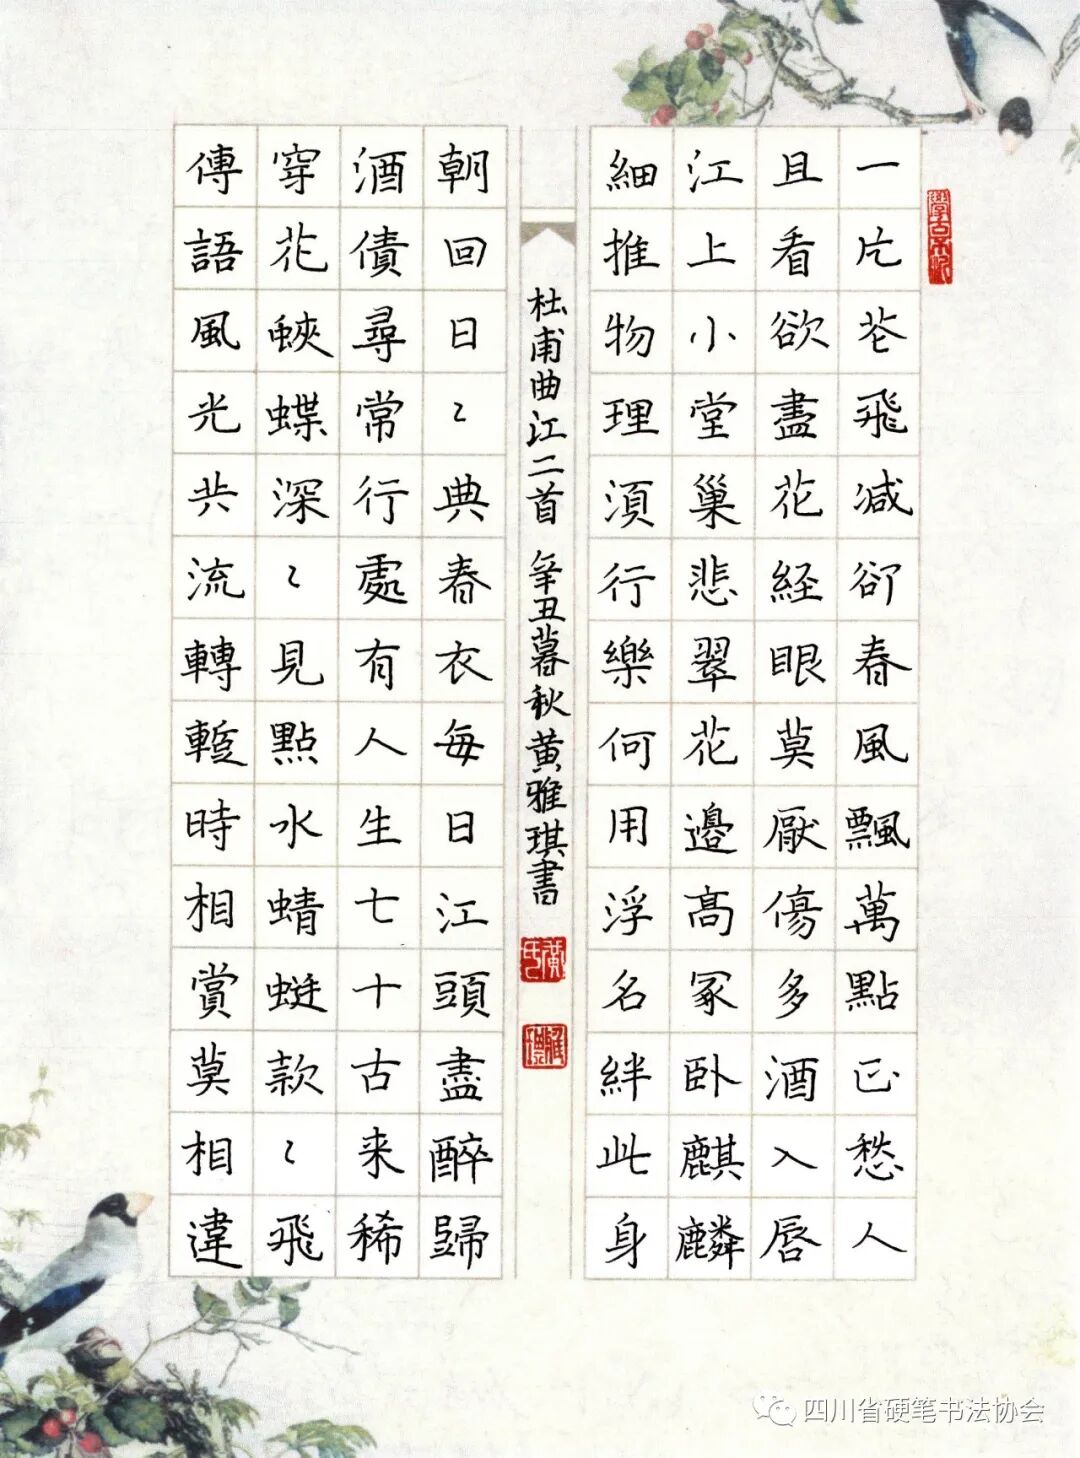 一片花飛减卻春風飄萬點正愁人
且看欲盡花経眼莫厭傷多酒入唇
江上小堂巢悲翠花邊髙冢卧麒麟
細推物理須行樂何用浮名絆此身
杜甫曲江二首 辛丑暮秋黄雅琪書
朝回日〻典春衣每日江頭盡醉歸
酒債尋常行處有人生七十古来稀
穿花蛺蝶深〻見點水蜻蜓款〻飛
傳語風光共流轉暫時相賞莫相違
四川省硬笔书法协会